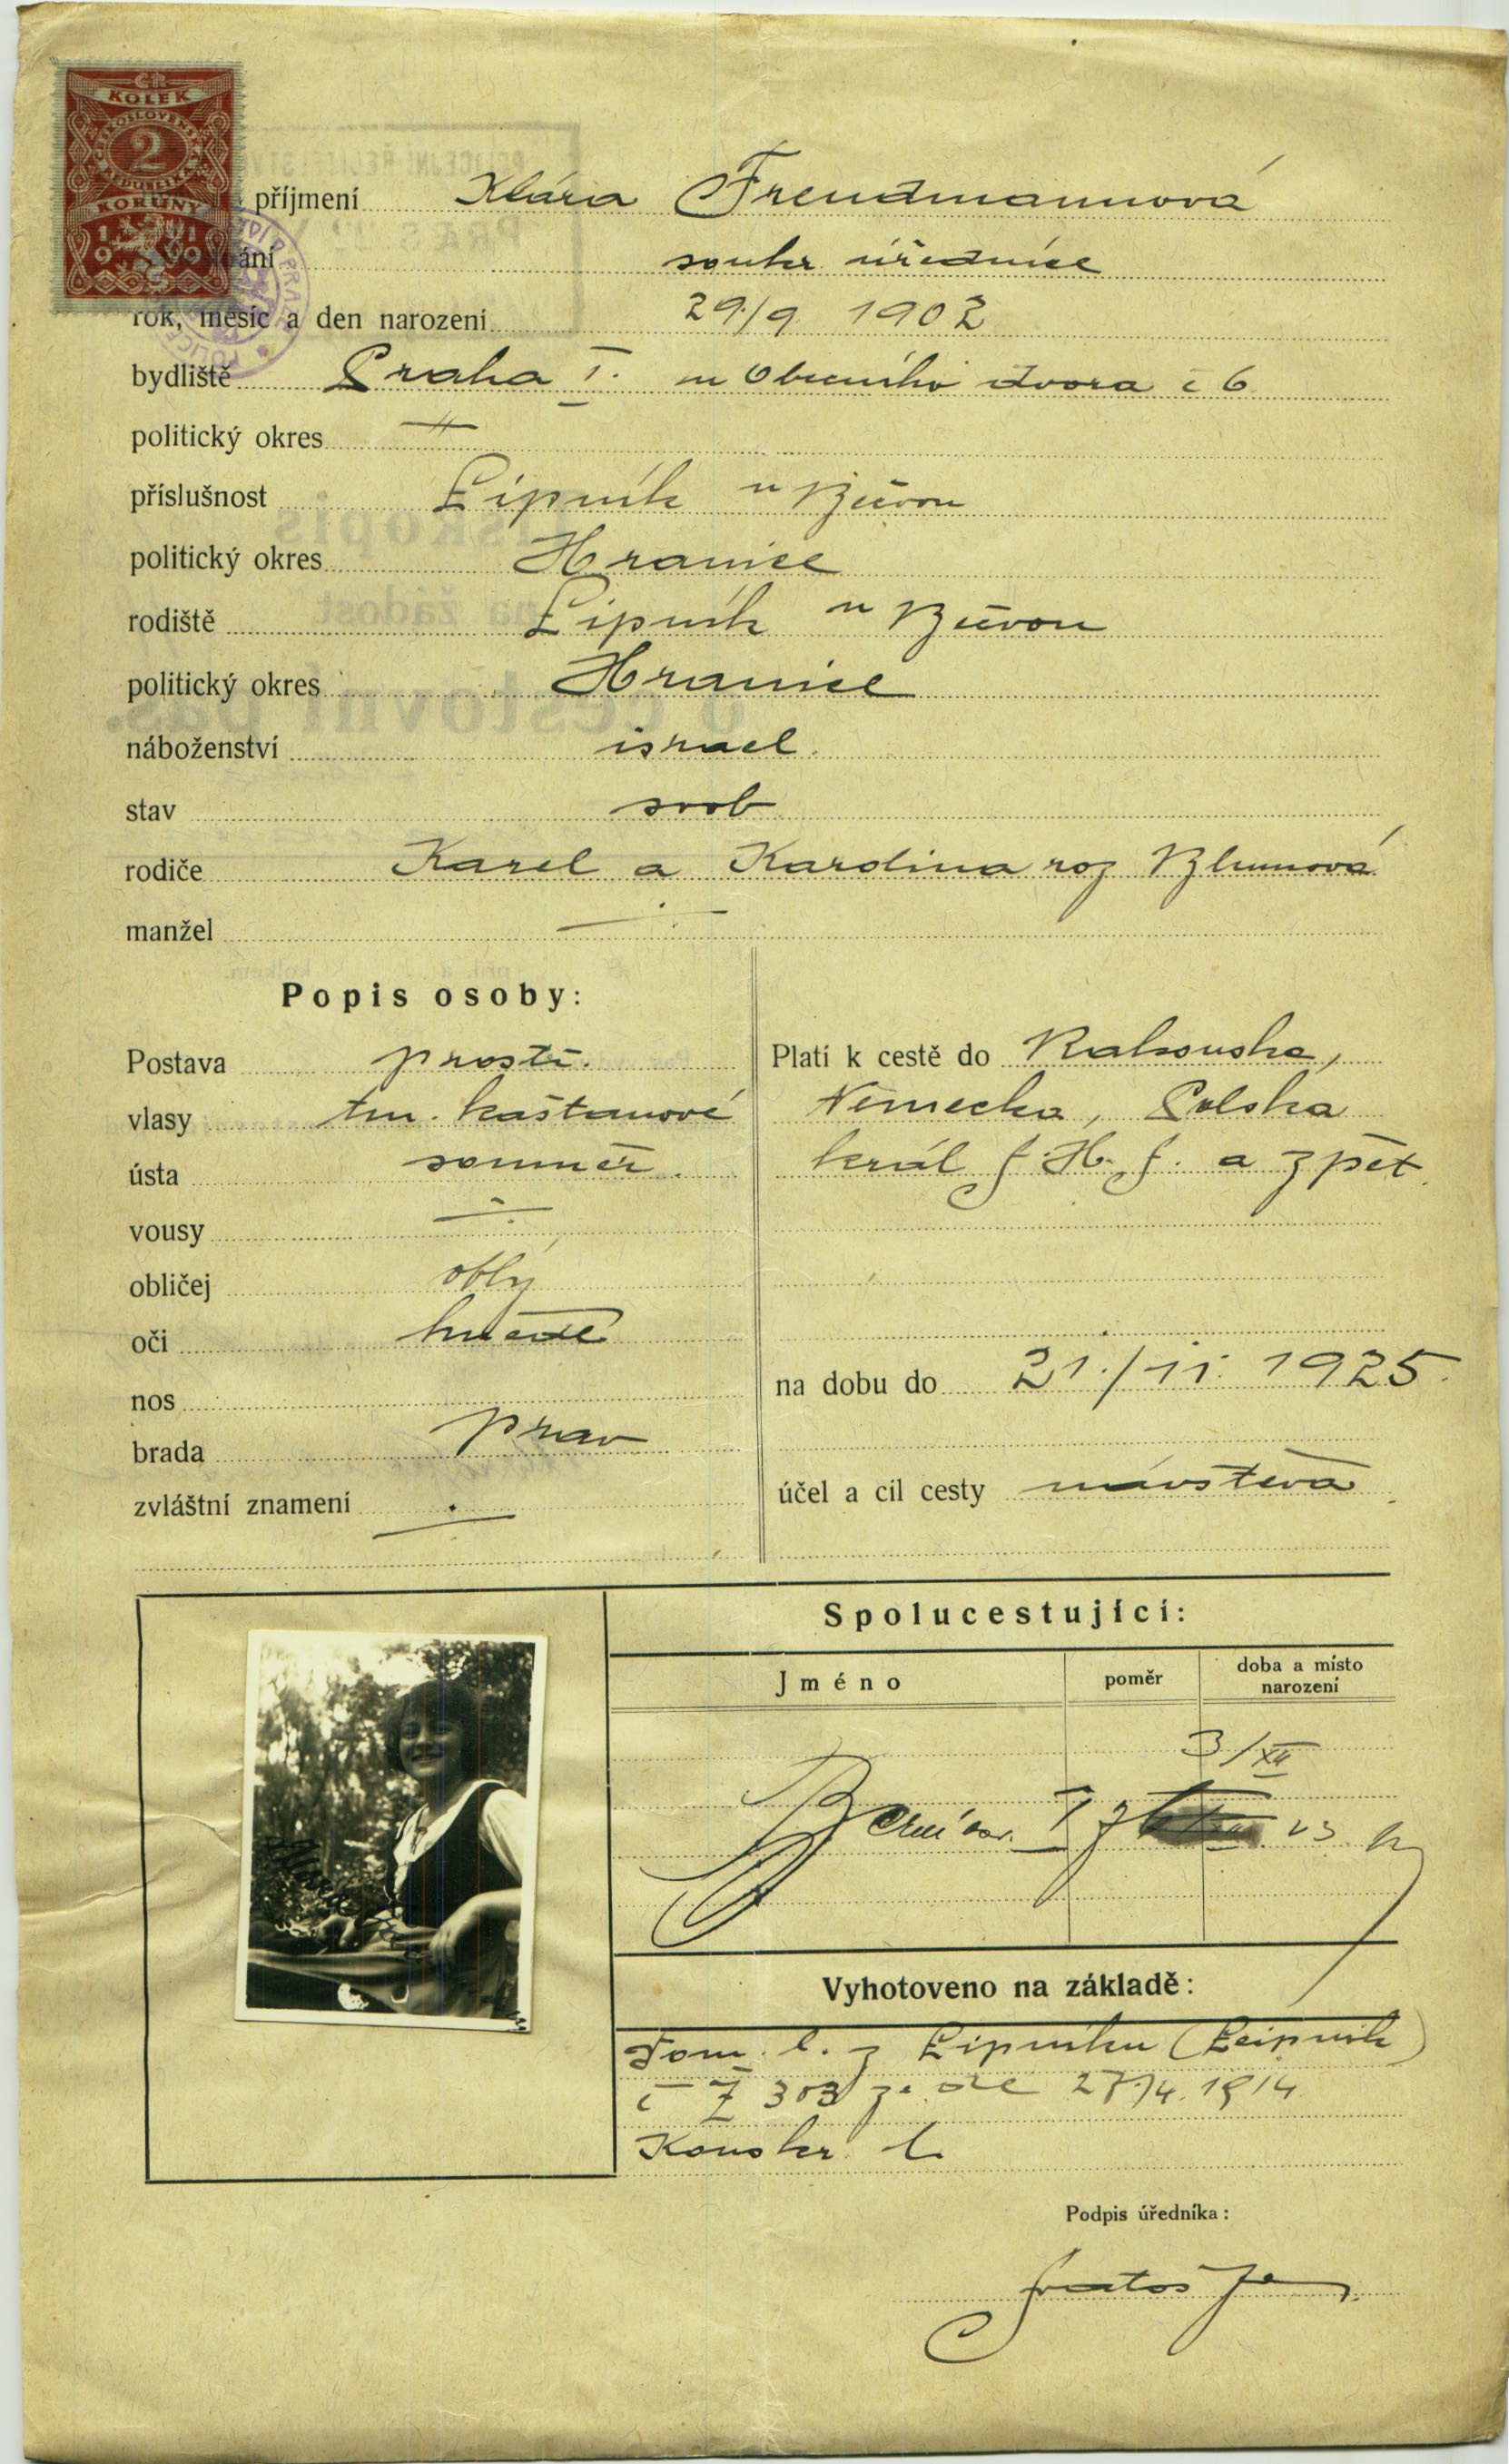 ČR
KOLEK
ČESKOSLOVENSKÁ
2
REPUBLIKA
KORUNY
1919
příjmení Klára Freudmannová
ání soukr. úřednice
rok, měsíc a den narození 29./9. 1902
bydliště Praha I. u Obecního dvora č 6
politický okres
příslušnost Lipník n Bečvou
politický okres Hranice
rodiště Lipník n Bečvou
politický okres Hranice
náboženství israel.
stav svob.
rodiče Karel a Karolina roz Blumová
manžel
Popis osoby:
Postava prostř.
vlasy tm. kaštanové
ústa souměr.
vousy
obličej oblý
oči hnědé
nos
brada prav
zvláštní znamení
Platí k cestě do Rakouska,
Německa, Polska
král S. H. S. a zpět.
na dobu do 21./11. 1925.
účel a cíl cesty návštěva.
Spolucestující:
Jméno poměr doba a místo narození
3/XII
23
Vyhotoveno na základě:
Dom. l. z Lipníku (Leipnik)
č Ž 303 ze dne 27./4. 1914
Konskr. l.
Podpis úředníka: